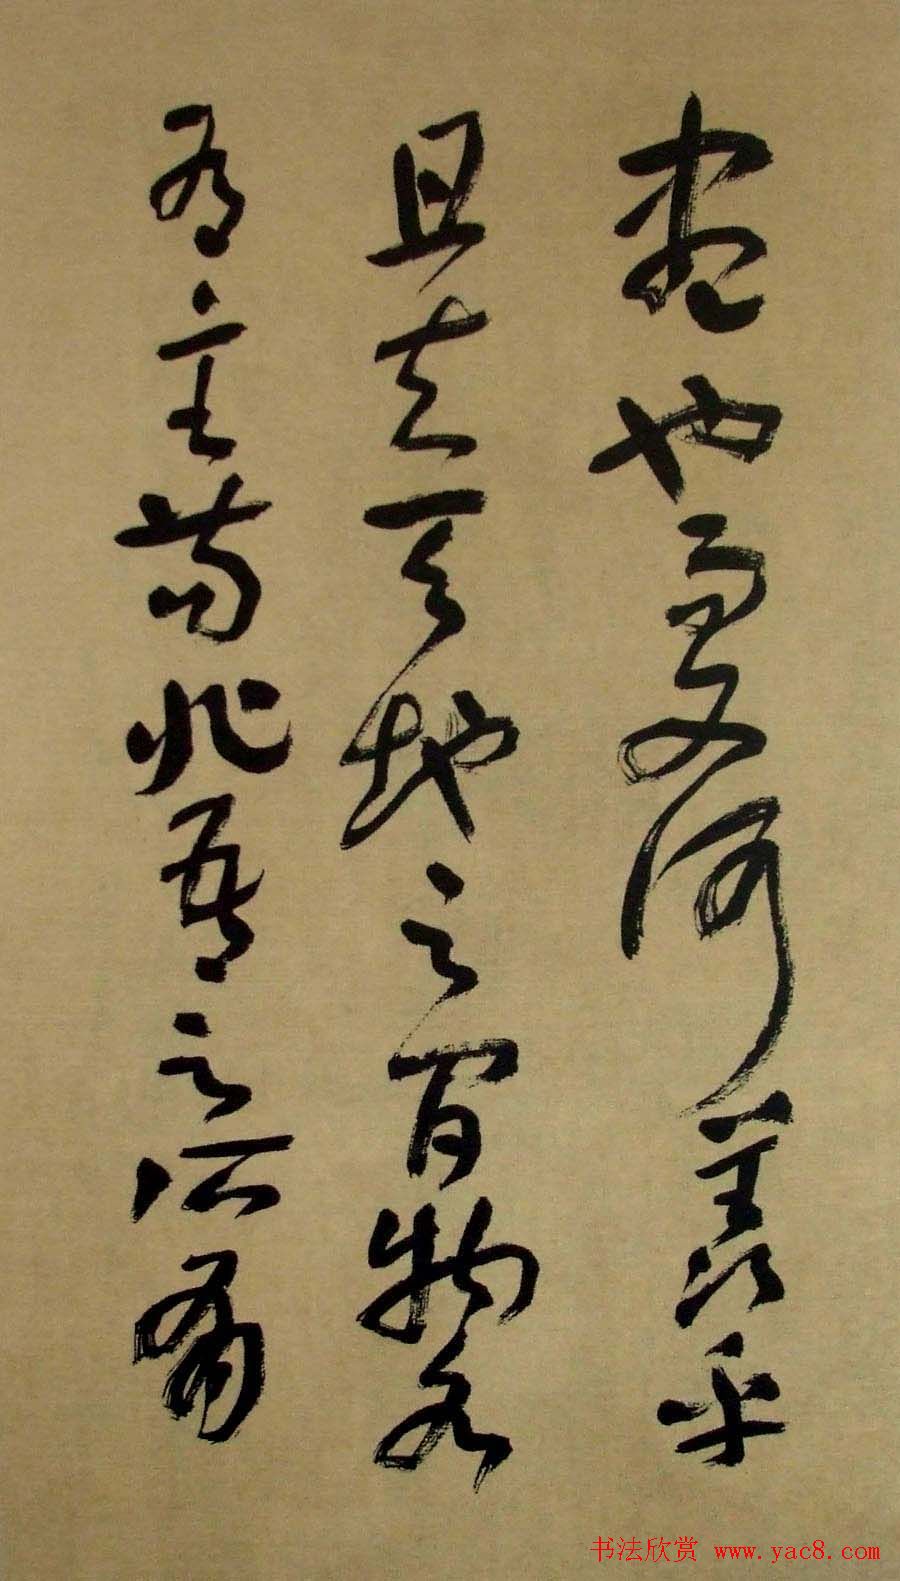 盡也而又何羨乎
且夫天地之間物各
有主苟非吾之所有
书法欣赏 www.yac8.com